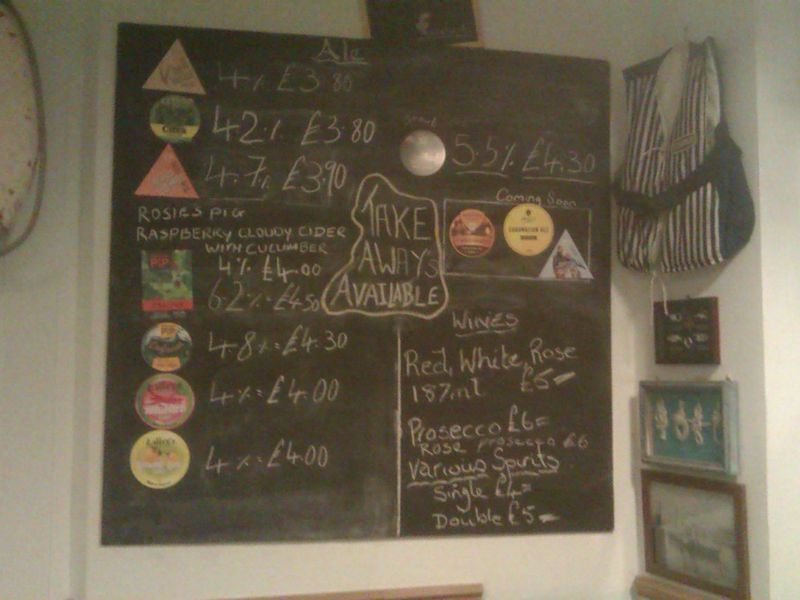 Ale
4% £3.80
Citra
4.2% £3.80
4.7% £3.90
ROSIES PIG
RASPBERRY CLOUDY CIDER
WITH CUCUMBER
4% £4.00
6.2% = £4.50
4.8% = £4.30
4% = £4.00
4% = £4.00
TAKE
AWAYS
AVAILABLE
Stout
5.5% £4.30
Coming Soon
CORONATION ALE
WINES
Red, White, Rose
187ml £5=
Prosecco £6=
Rose prosecco £6
Various Spirits
Single £4=
Double £5=